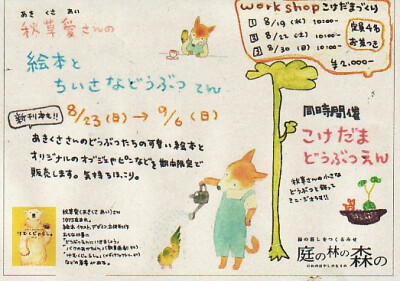 あき くさ あい
秋草愛さんの
絵本と
ちいさなどうぶつてん
新刊本も!!
8/23(日)→9/6(日)
あきくささんのどうぶつたちの可愛い絵本と
オリジナルのオブジェやピンなどを期間限定で
販売します。気持ちほっこり。
workshop こけだまづくり
1 8/19(水) 10:00~
2 8/22(土) 10:00~
3 8/30(日) 10:00~
定員4名
お茶つき
¥2,000-
同時開催
こけだま
どうぶつえん
秋草さんの小さな
どうぶつと飾って
秋草愛(あきくさあい)さん
などの著書がある。
緑の暮しをつくるみせ
庭の林の森の